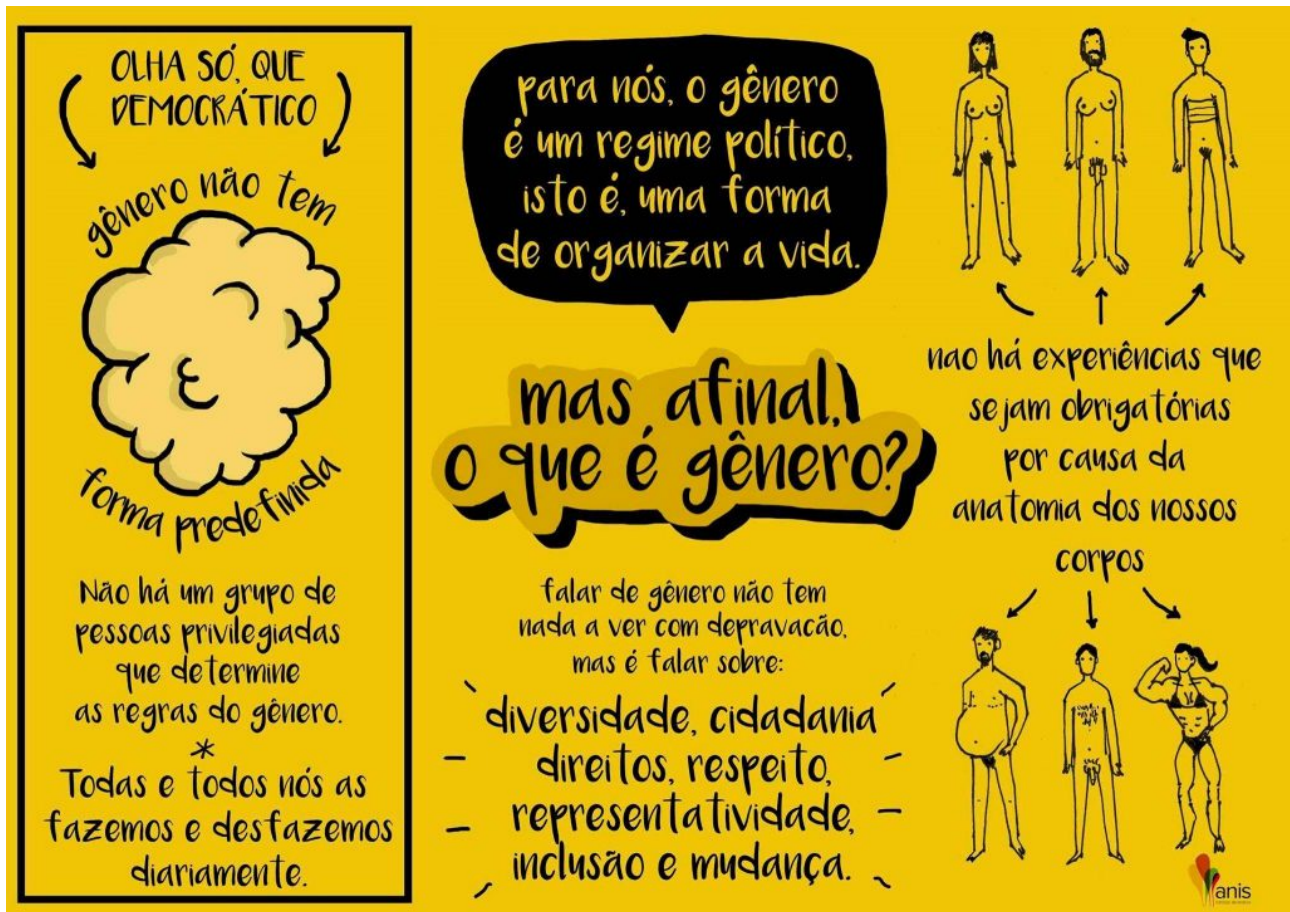 OLHA SÓ, QUE
DEMOCRÁTICO
gênero não tem
forma predefinida
Não há um grupo de
pessoas privilegiadas
que determine
as regras do gênero.
*
Todas e todos nós as
fazemos e desfazemos
diariamente.
para nós, o gênero
é um regime político,
isto é, uma forma
de organizar a vida.
mas afinal,
o que é gênero?
falar de gênero não tem
nada a ver com depravacão,
mas é falar sobre:
diversidade, cidadania
direitos, respeito,
representatividade,
inclusão e mudança.
nao há experiências que
sejam obrigatórias
por causa da
anatomia dos nossos
corpos
anis